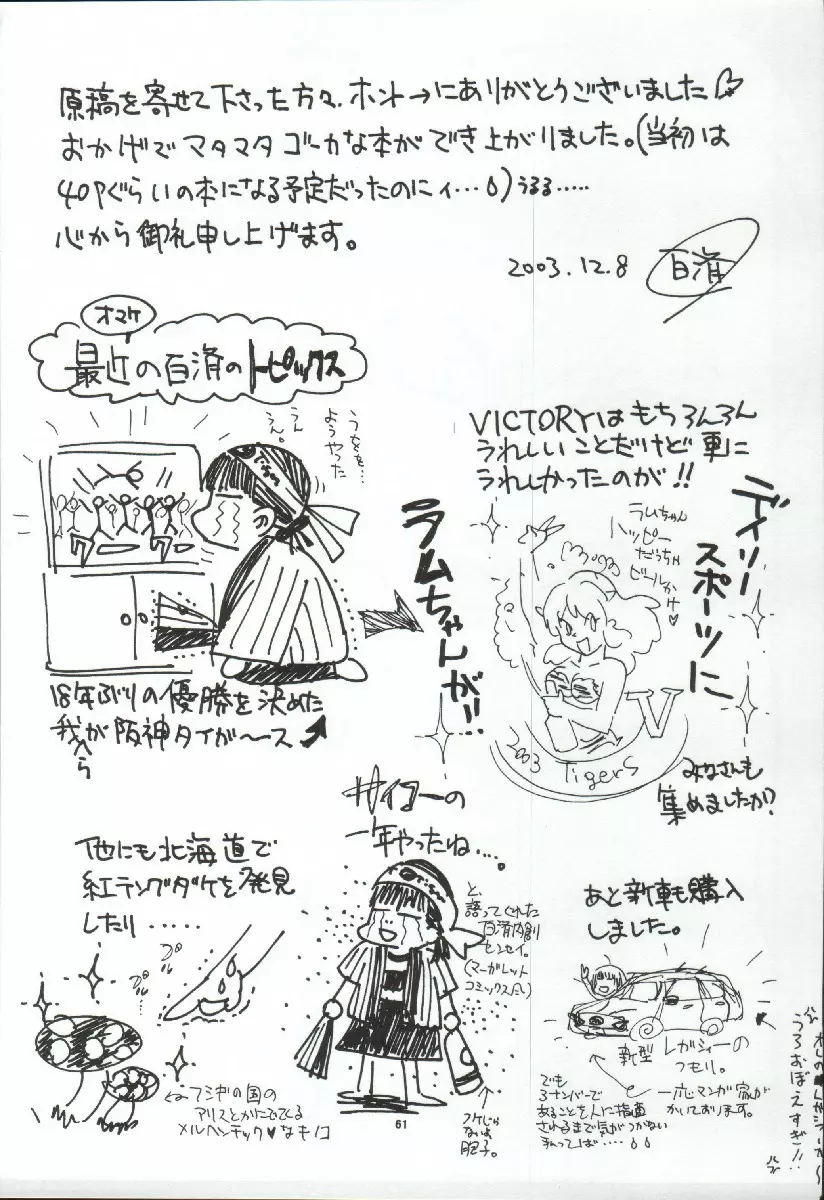 原稿を寄せて下さった方々、ホントーにありがとうございました
おかげでマタマタゴーカな本ができ上がりました。(当初は
40Pぐらいの本になる予定だったのにィ…)うるる……
心から御礼申し上げます。
2003.12.8 百済
オマケ
最近の百済のトピックス
うをを…
ようやった
うん
え。
18年ぶりの優勝を決めた
我が阪神タイガ〜ース
VICTORYはもちろんろん
うれしいことだけど更に
うれしかったのが!!
デイリー
スポーツに
ラムちゃんが!!
ラムちゃん
ハッピー
だっちゃ
ビールかけ♥
V
2003 Tigers
みなさんも
集めましたか?
サイコーの
一年やったね…。
と、
語ってくれた
百済内創
センセイ。
(マーガレット
コミックスだい)
フケじゃ
ないよ
胆子。
他にも北海道で
紅テングダケを発見
したり……
プル
プル
フシギの国の
アリスとかにでてくる
メルヘンチック♥なキノコ
あと新車も購入
しました。
新型レガシィーの
つもり。
一応マンガ家が
かいております。
でも
3ナンバーで
あることを人に指摘
されるまで気がつかない
私ってば……
うろおぼえすぎ!!
61